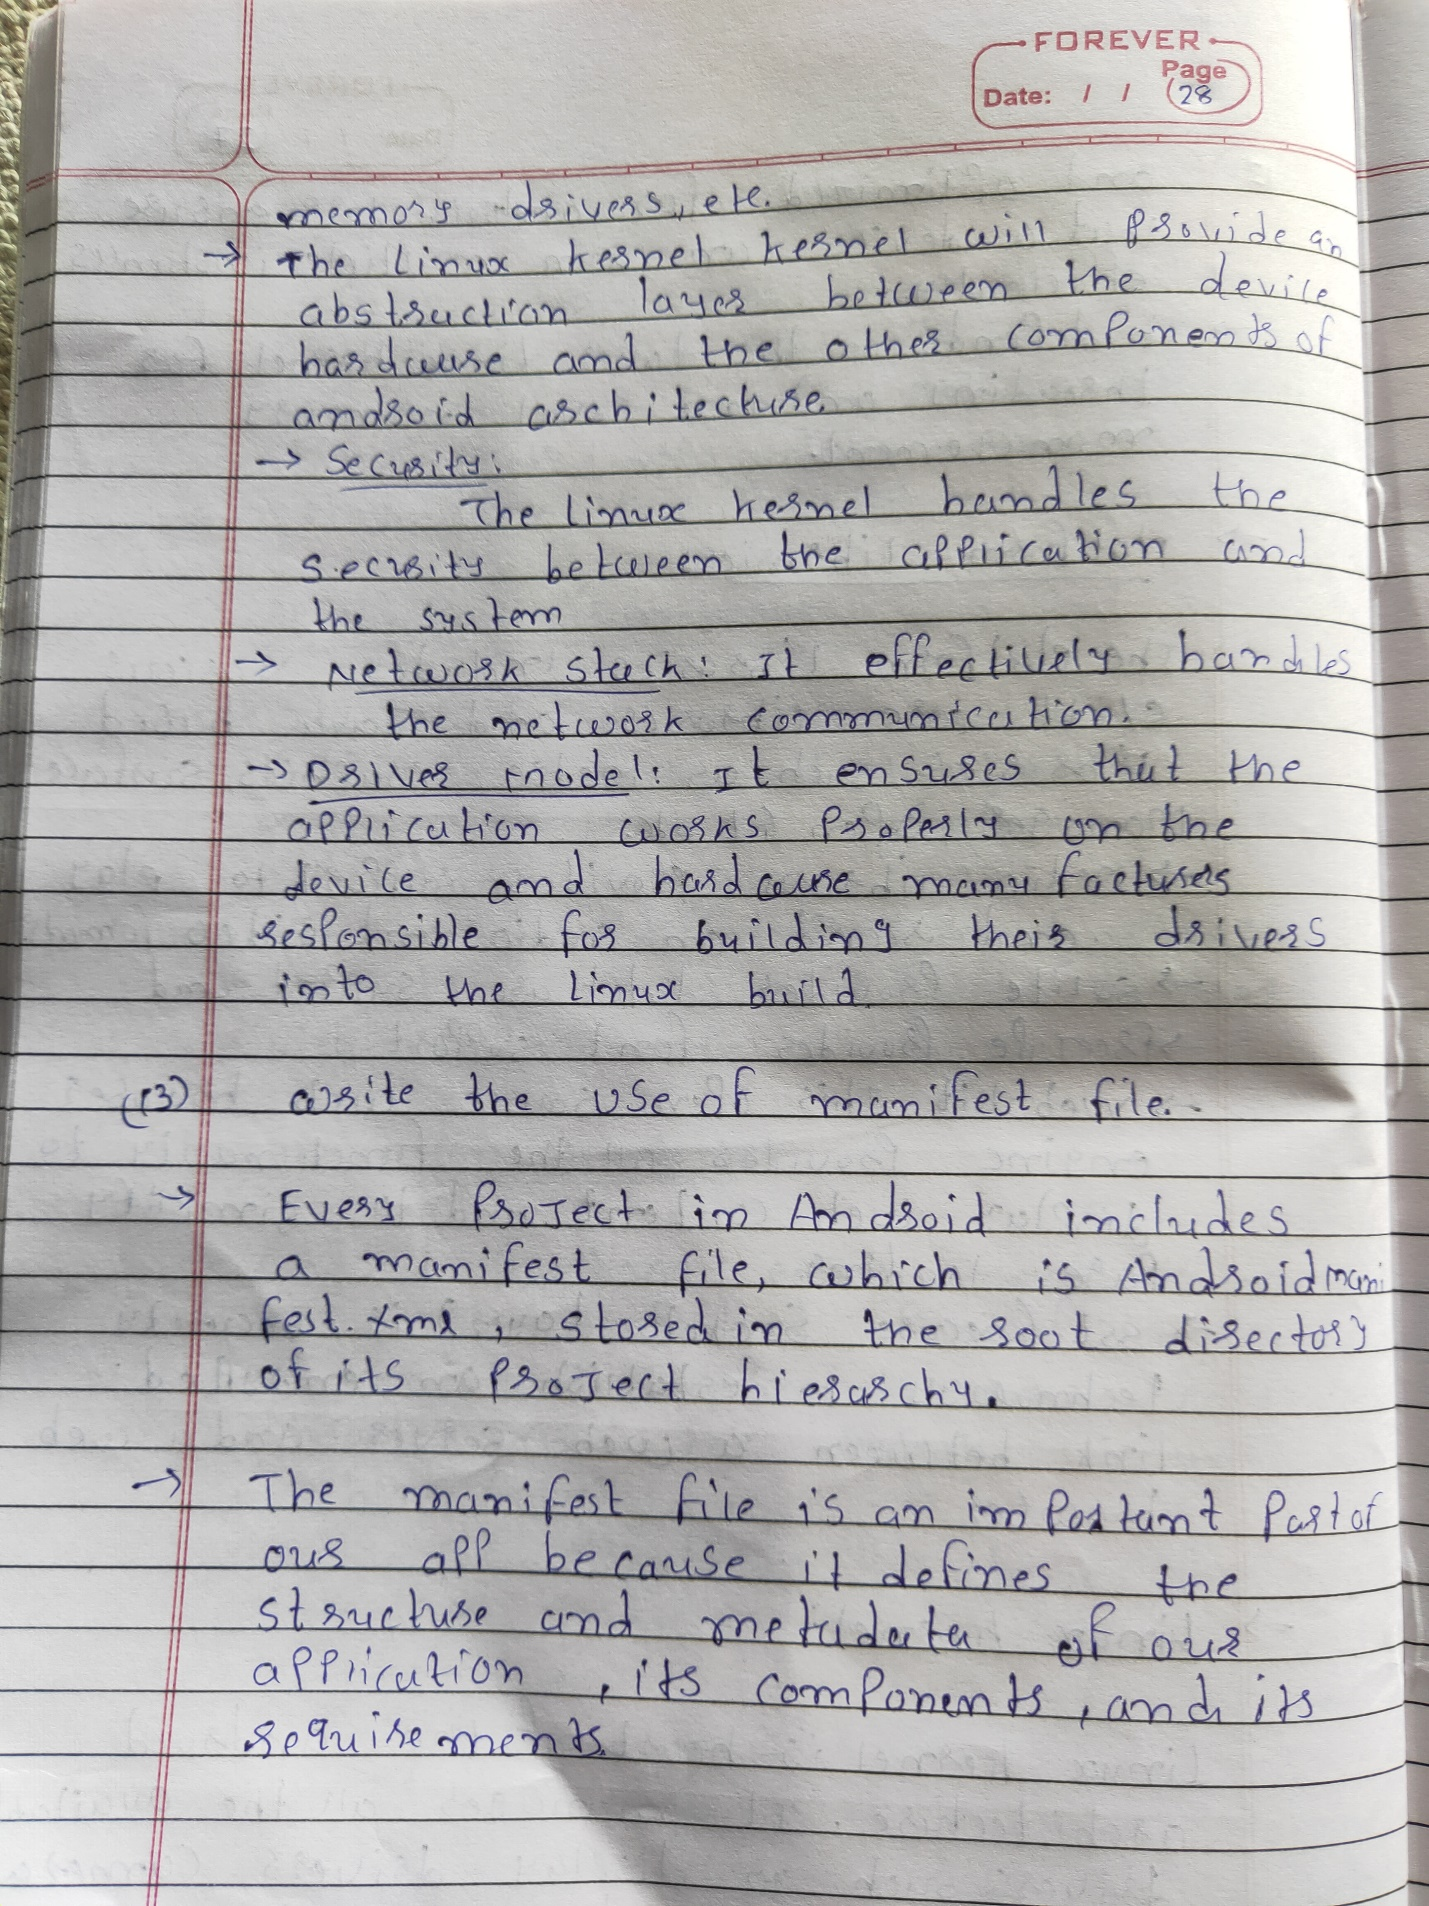 FOREVER
Page
Date: / / 28
memory drivers, etc.
→ The Linux kernel kernel will provide an
abstraction layer between the device
hardware and the other components of
android architecture
→ Security:
The linux kernel handles the
secrity between the application and
the system
→ Network stack: It effectively handles
the network communication.
→ Driver model: It ensures that the
application works properly on the
device and hardware manufacturers
responsible for building their drivers
into the Linux build.
(13) write the use of manifest file.
→ Every project in Android includes
a manifest file, which is Androidmani
fest.xml, stored in the root directory
of its project hierarchy.
→ The manifest file is an important part of
our app because it defines the
structure and metadata of our
application, its components, and its
requirements.